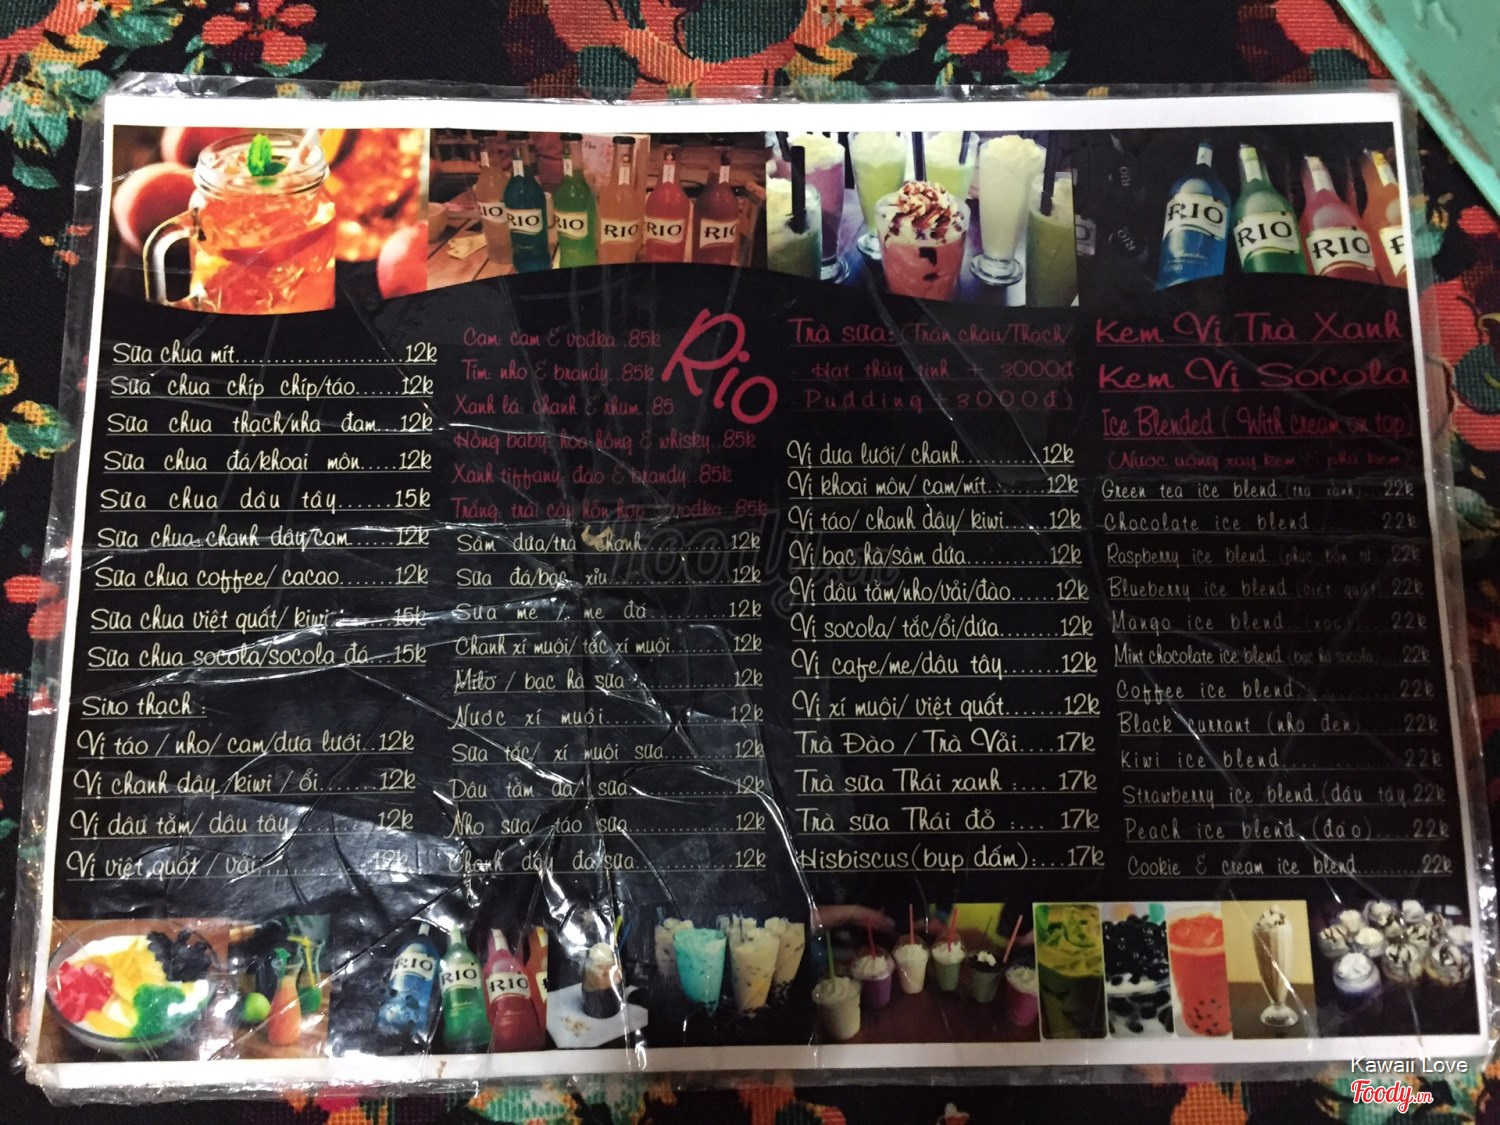 Sữa chua mít......................12k
Sữa chua chíp chíp/táo......12k
Sữa chua thạch/nha đam...12k
Sữa chua đá/khoai môn.....12k
Sữa chua dâu tây.......15k
Sữa chua chanh dây/cam......12k
Sữa chua coffee/ cacao.......12k
Sữa chua việt quất/ kiwi......15k
Sữa chua socola/socola đá...15k
Siro thạch :
Vị táo / nho/ cam/dưa lưới..12k
Vị chanh dây /kiwi / ổi.......12k
Vị dâu tằm/ dâu tây..........12k
Vị việt quất / vải..............12k
Rio
Cam: cam & vodka..85k
Tím: nho & brandy..85k
Xanh lá: chanh & rhum..85
Hồng baby: hoa hồng & whisky..85k
Xanh tiffany: đào & brandy..85k
Trắng: trái cây hỗn hợp & vodka..85k
Sâm dứa/trà chanh.........12k
Sữa đá/bạc xỉu...............12k
Sữa me / me đá ..........12k
Chanh xí muội/ tắc xí muội......12k
Milo / bạc hà sữa............12k
Nước xí muội..............12k
Sữa tắc/ xí muội sữa.......12k
Dâu tằm đá/ sữa...........12k
Nho sữa/ táo sữa...........12k
Chanh dây đá/sữa..........12k
Trà sữa: (Trân châu/Thạch/
Hạt thủy tinh + 3000đ
Pudding +3000đ)
Vị dưa lưới/ chanh..........12k
Vị khoai môn/ cam/mít.......12k
Vị táo/ chanh dây/ kiwi......12k
Vị bạc hà/sâm dứa..........12k
Vị dâu tằm/nho/vải/đào......12k
Vị socola/ tắc/ổi/dứa........12k
Vị cafe/me/dâu tây.......12k
Vị xí muội/ việt quất.......12k
Trà Đào / Trà Vải....17k
Trà sữa Thái xanh :.... 17k
Trà sữa Thái đỏ :.... 17k
Hisbiscus(bụp dấm):....17k
Kem Vị Trà Xanh
Kem Vị Socola
Ice Blended ( With cream on top)
(Nước uống xay kem & phủ kem)
Green tea ice blend.(trà xanh)...22k
Chocolate ice blend ..........22k
Raspberry ice blend.(phúc bồn tử)..22k
Blueberry ice blend.(việt quất).22k
Mango ice blend..(xoài).....22k
Mint chocolate ice blend.(bạc hà socola)...22k
Coffee ice blend............22k
Black currant (nho đen).....22k
Kiwi ice blend.............22k
Strawberry ice blend.(dâu tây 22k
Peach ice blend.(đào)....22k
Cookie & cream ice blend..........22k
RIO
RIO
RIO
RIO
RIO
RIO
RIO
RIO
RIO
RIO
RIO
RIO
Foody.vn
Kawaii Love
Foody.vn